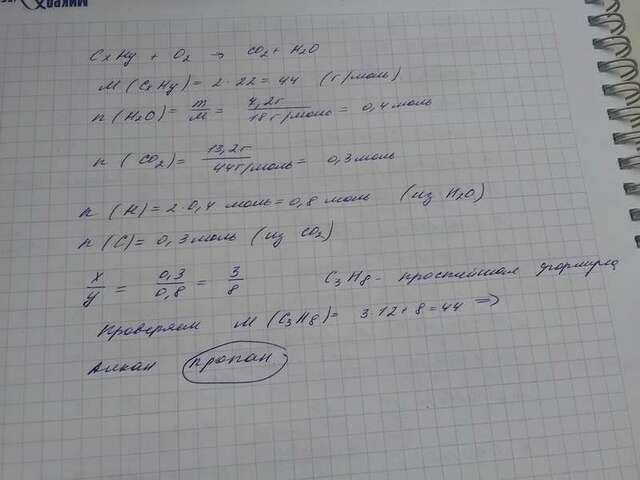 CxHy + O2 → CO2 + H2O
M (CxHy) = 2 · 22 = 44 (г/моль)
n (H2O) = m/M = 7,2г/18 г/моль = 0,4 моль
n (CO2) = 13,2г/44г/моль = 0,3 моль
n (H) = 2 · 0,4 моль = 0,8 моль (из H2O)
n (C) = 0,3 моль (из CO2)
x/y = 0,3/0,8 = 3/8 C3H8 - простейшая формула
Проверяем M (C3H8) = 3·12+8=44 =>
Алкан пропан